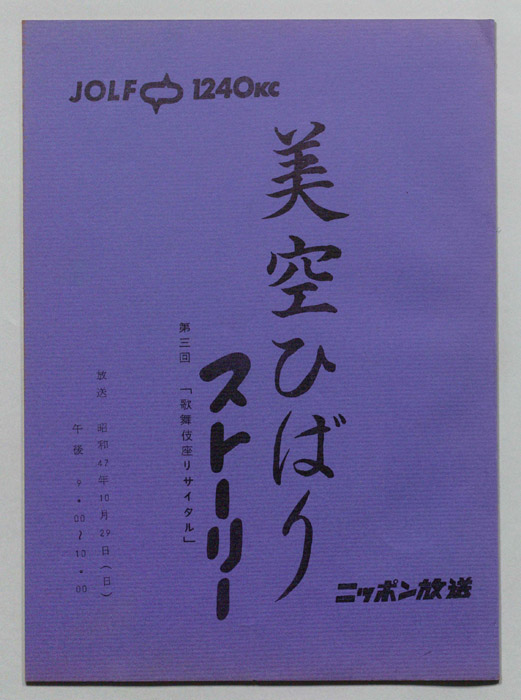 JOLF 1240KC
美空ひばり
ストーリー
第三回 「歌舞伎座リサイタル」
放送 昭和47年10月29日(日)
午後 9・00~10・00
ニッポン放送